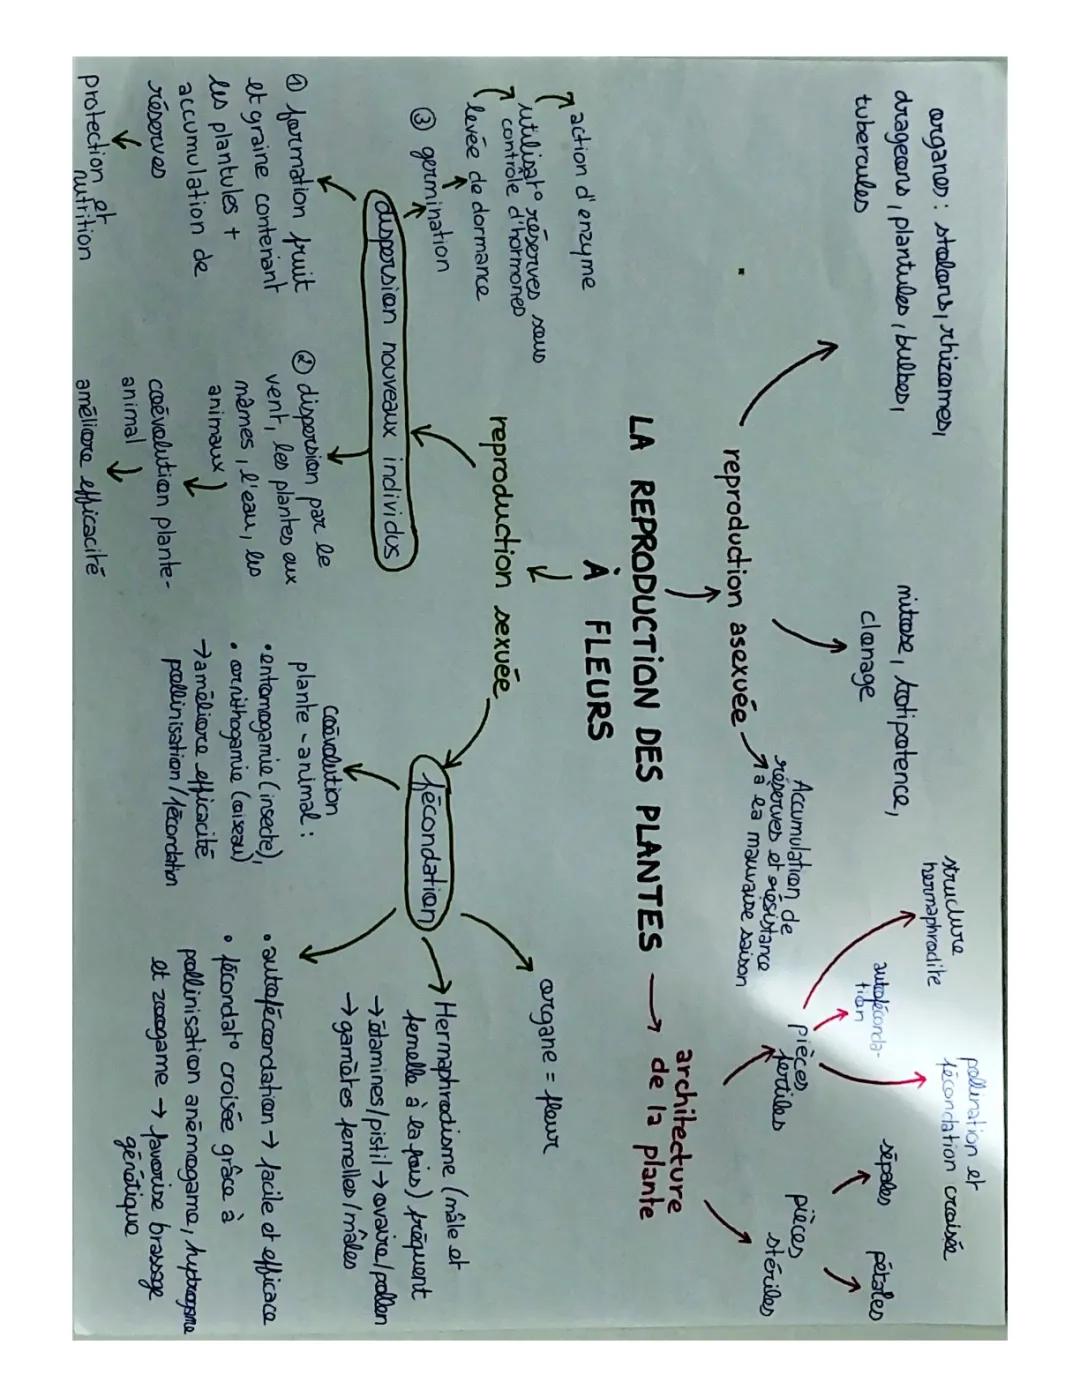 organes : stolons, rhizomes,
drageons, plantules, bulbes,
tubercules
mitose, totipotence,
clonage
structure
hermaphrodite
autoféconda-
tion
pollination et
fécondation croisée
sépales
pétales
pièces
fertiles
pièces
stériles
Accumulation de
réserves et résistance
à la mauvaise saison
reproduction asexuée
LA REPRODUCTION DES PLANTES
À FLEURS
architecture
de la plante
reproduction sexuée
action d'enzyme
utilisat° réserves sous
contrôle d'hormones
levée de dormance
③ germination
dispersion nouveaux individus
① formation fruit
et graine contenant
les plantules +
accumulation de
réserves
protection et
nutrition
② dispersion par le
vent, les plantes eux
mêmes, l'eau, les
animaux)
coévolution plante-
animal
améliore efficacité
fécondation
organe = fleur
Hermaphrodisme (mâle et
femelle à la fois) fréquent
→ étamines/pistil → ovaire/pollen
→ gamètes femelles/mâles
coévolution
plante-animal :
• entomogamie (insecte),
• ornithogamie (oiseau)
→ améliore efficacité
pollinisation/fécondation
• autofécondation → facile et efficace
• fécondat° croisée grâce à
pollinisation anémogame, hydrogame
et zoogame → favorise brassage
génétique